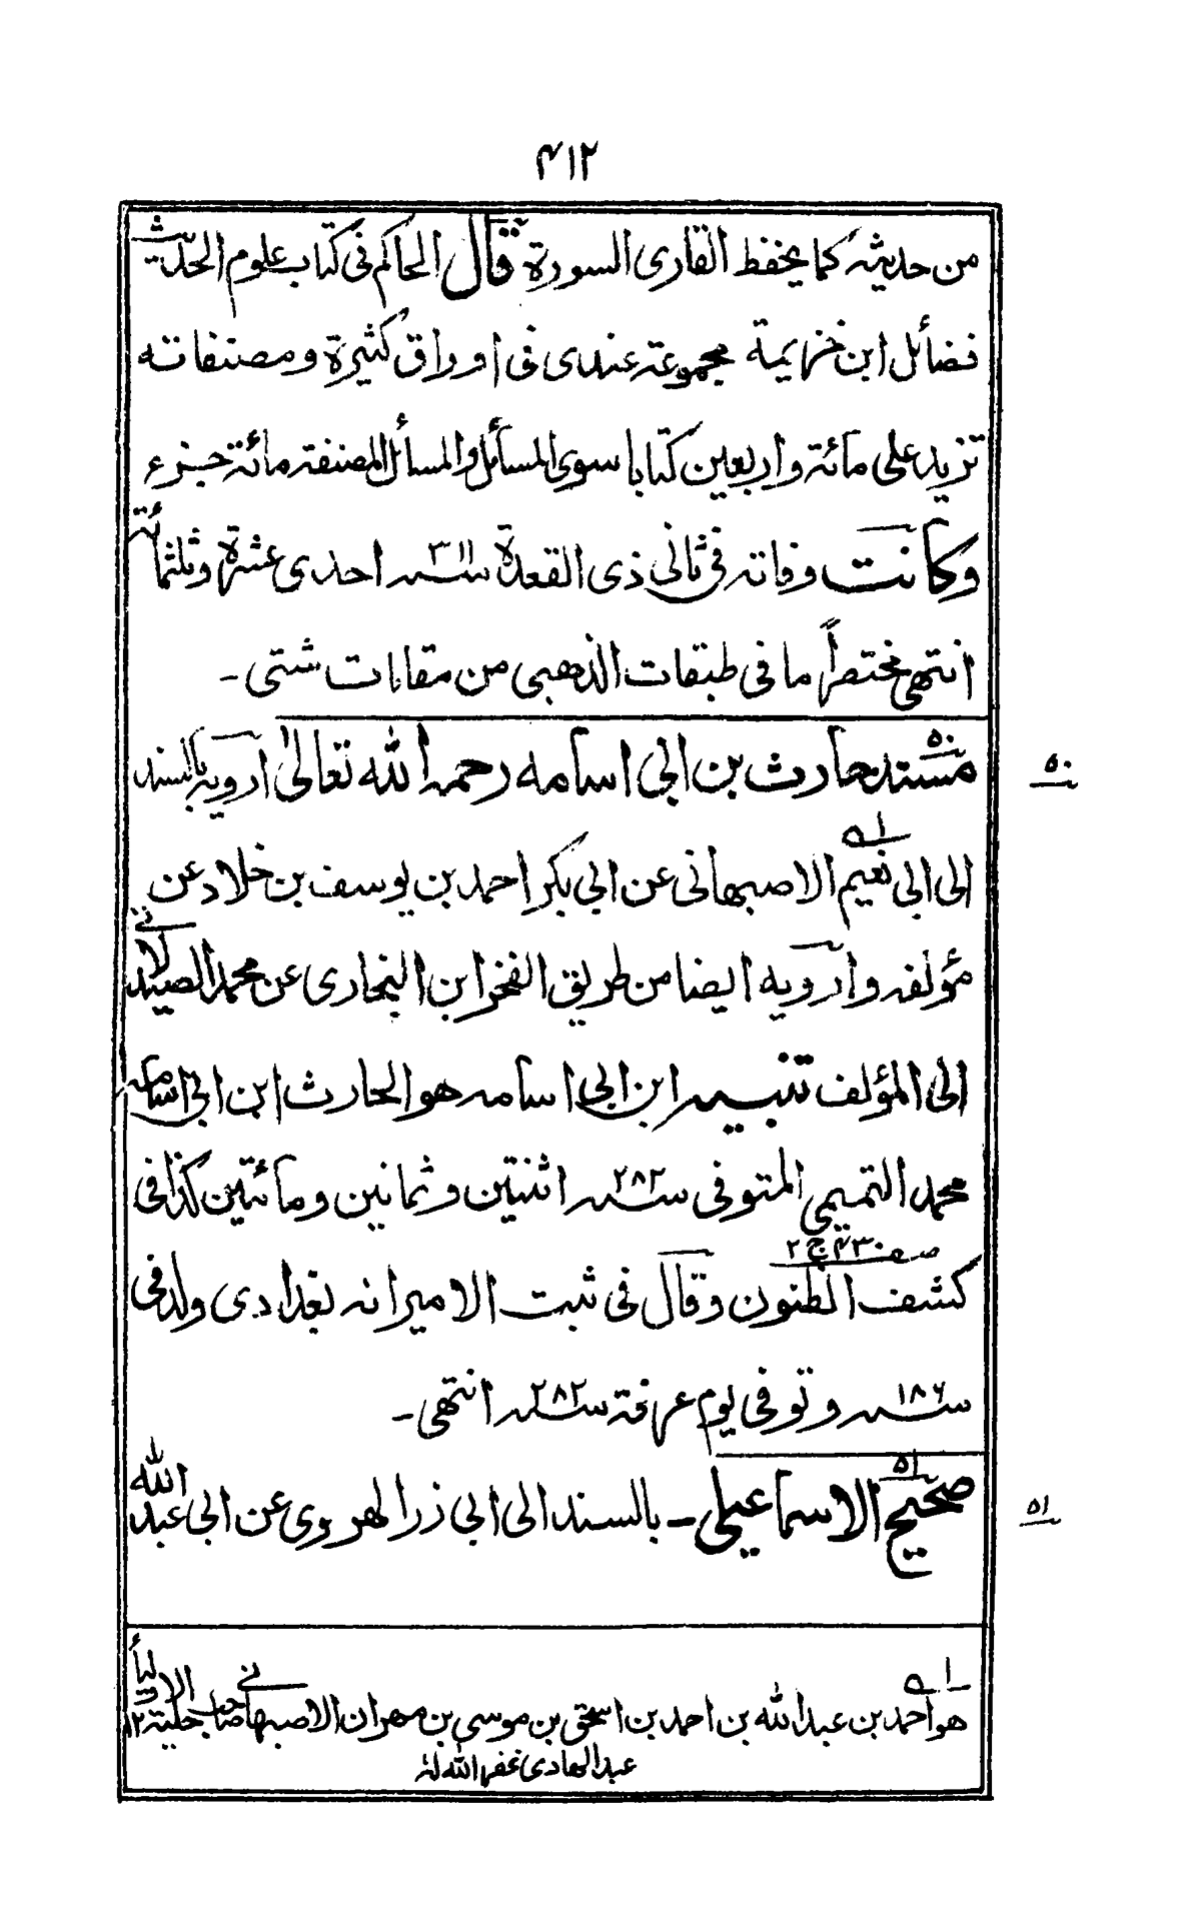 ۴۱۲
من حديثه كما يحفظ القارى السورة قال الحاكم فى كتاب علوم الحديث
فضائل ابن خزيمة مجموعة عندى فى اوراق كثيرة ومصنفاته
تزيد على مائة واربعين كتابا سوى المسائل والمسائل المصنفة مائة جزء
وكانت وفاته فى ثانى ذى القعدة سنه ۳۱۱ احدى عشرة وثلثمائة
انتهى مختصراً ما فى طبقات الذهبى من مقامات شتى -
۵۰ مسند حارث بن ابى اسامه رحمه الله تعالى ارويه بالسند
۵۰
الى ابى نعيم ۱ه الاصبهانى عن ابى بكر احمد بن يوسف بن خلاد عن
مؤلفه وارويه ايضا من طريق الفخر ابن البخارى عن محمد الصيدلانى
الى المؤلف تنبيه ابن ابى اسامه هو الحارث ابن ابى اسامه
محمد التميمى المتوفى سنه ۲۸۲ اثنتين وثمانين ومائتين كذا فى
كشف الظنون صفه ۴۳۰ ج ۲ وقال فى ثبت الامير انه بغدادى ولد فى
سنه ۱۸۶ وتوفى يوم عرفة سنه ۲۸۲ انتهى -
۵۱ صحيح الاسماعيلى - بالسند الى ابى ذر الهروى عن ابى عبد الله
۵۱
۱ه هو احمد بن عبد الله بن احمد بن اسحق بن موسى بن مهران الاصبهانى صاحب حلية الاولياء ۱۲
عبد الهادى غفر الله له